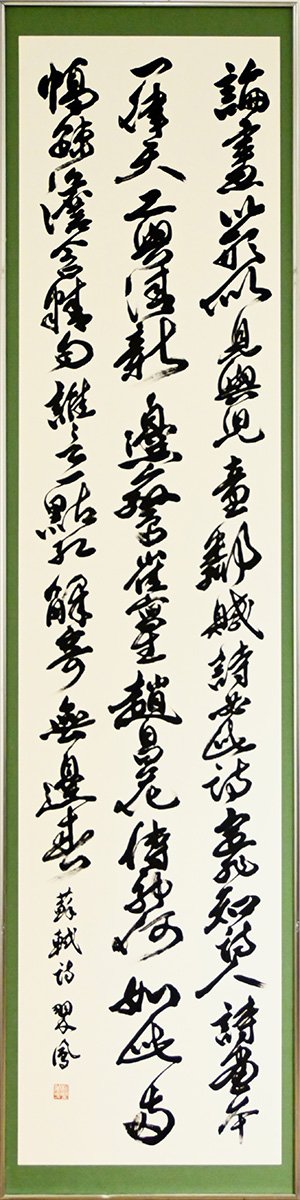 論畫以形似見與兒童鄰賦詩必此詩定非知詩人詩畫本
一律天工與清新邊鸞雀寫生趙昌花傳神何如此兩
幅疎澹含精勻誰言一點紅解寄無邊春 蘇軾詩 翠鳳